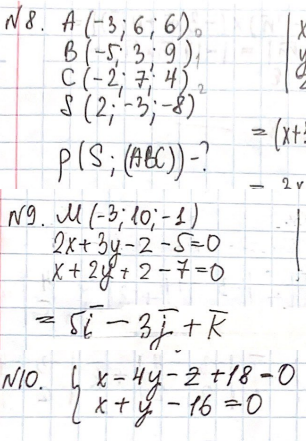 N8. A(-3; 6; 6)
B(-5; 3; 9)
C(-2; 7; 4)
S(2; -3; -8)
= (x+
ρ(S; (ABC)) - ?
N9. M(-3; 10; -1)
2x+3y-z-5=0
x+2y+z-7=0
= 5i̅ - 3j̅ + k̅
N10. { x-4y-z+18=0
x+y-16=0